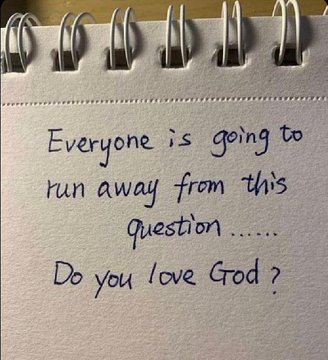 Everyone is going to
run away from this
question ......
Do you love God ?